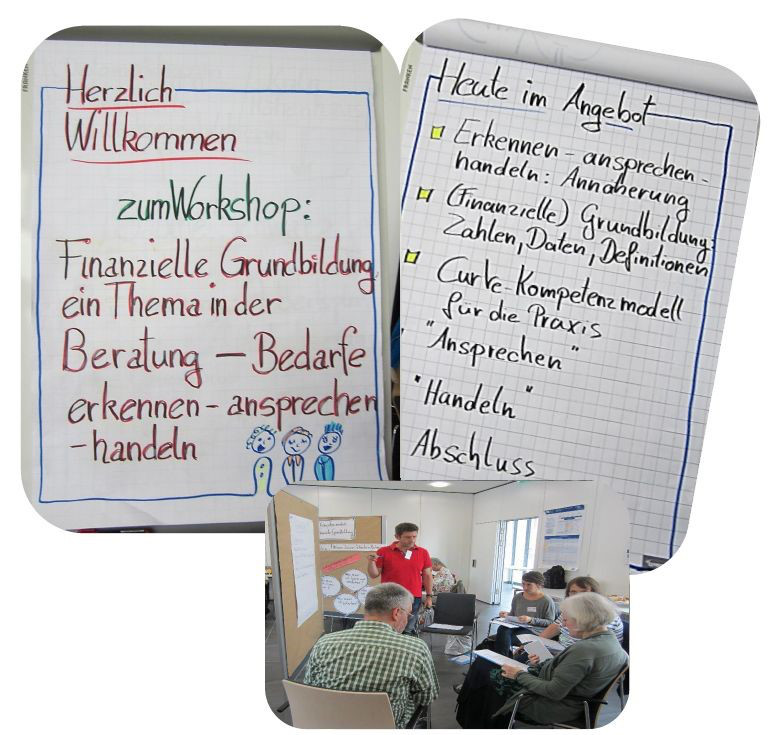 Herzlich
Willkommen
zum Workshop:
Finanzielle Grundbildung,
ein Thema in der
Beratung – Bedarfe
erkennen - ansprechen
- handeln
FRANKEN
Heute im Angebot
Erkennen - ansprechen -
handeln: Annäherung
(Finanzielle) Grundbildung:
Zahlen, Daten, Definitionen
CurVe-Kompetenzmodell
für die Praxis
"Ansprechen"
"Handeln"
Abschluss